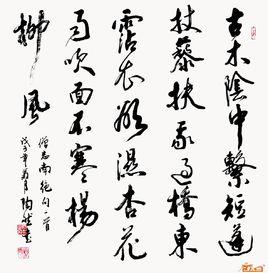 古木陰中繫短蓬
杖藜扶我過橋東
霑衣欲濕杏花
雨吹面不寒楊
柳風
僧志南絕句一首
戊子年